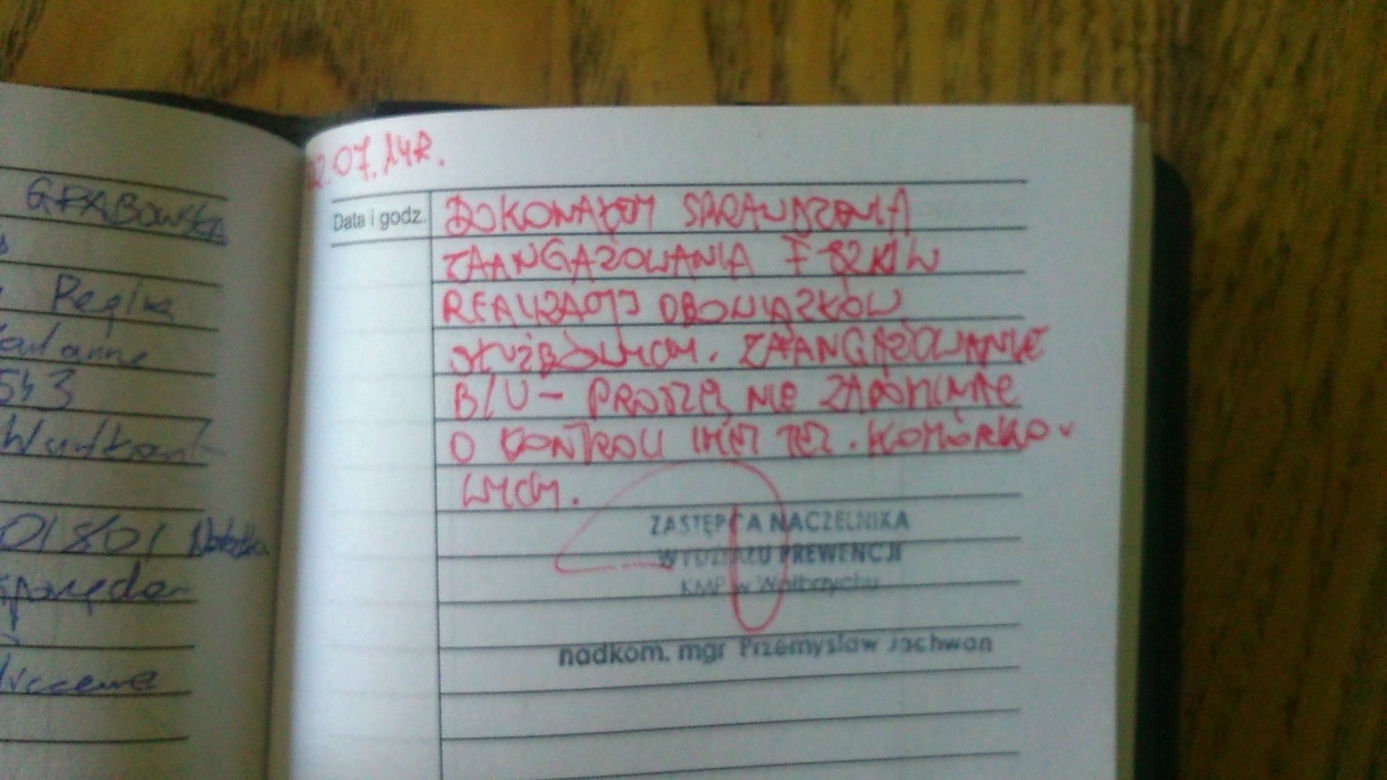 GRABOWSKA
Regina
543
01801 Notatka
2.07.14R.
Data i godz.
DOKONAŁEM SPRAWDZENIA
ZAANGAŻOWANIA
REALIZACJI OBOWIĄZKÓW
SŁUŻBOWYCH. ZAANGAŻOWANIE
B/U – PROSZĘ NIE ZAPOMINAĆ
O KONTROLI IMEI TEL. KOMÓRKO-
WYCH.
ZASTĘPCA NACZELNIKA
WYDZIAŁU PREWENCJI
KMP w Wałbrzychu
nadkom. mgr Przemysław Jachwan